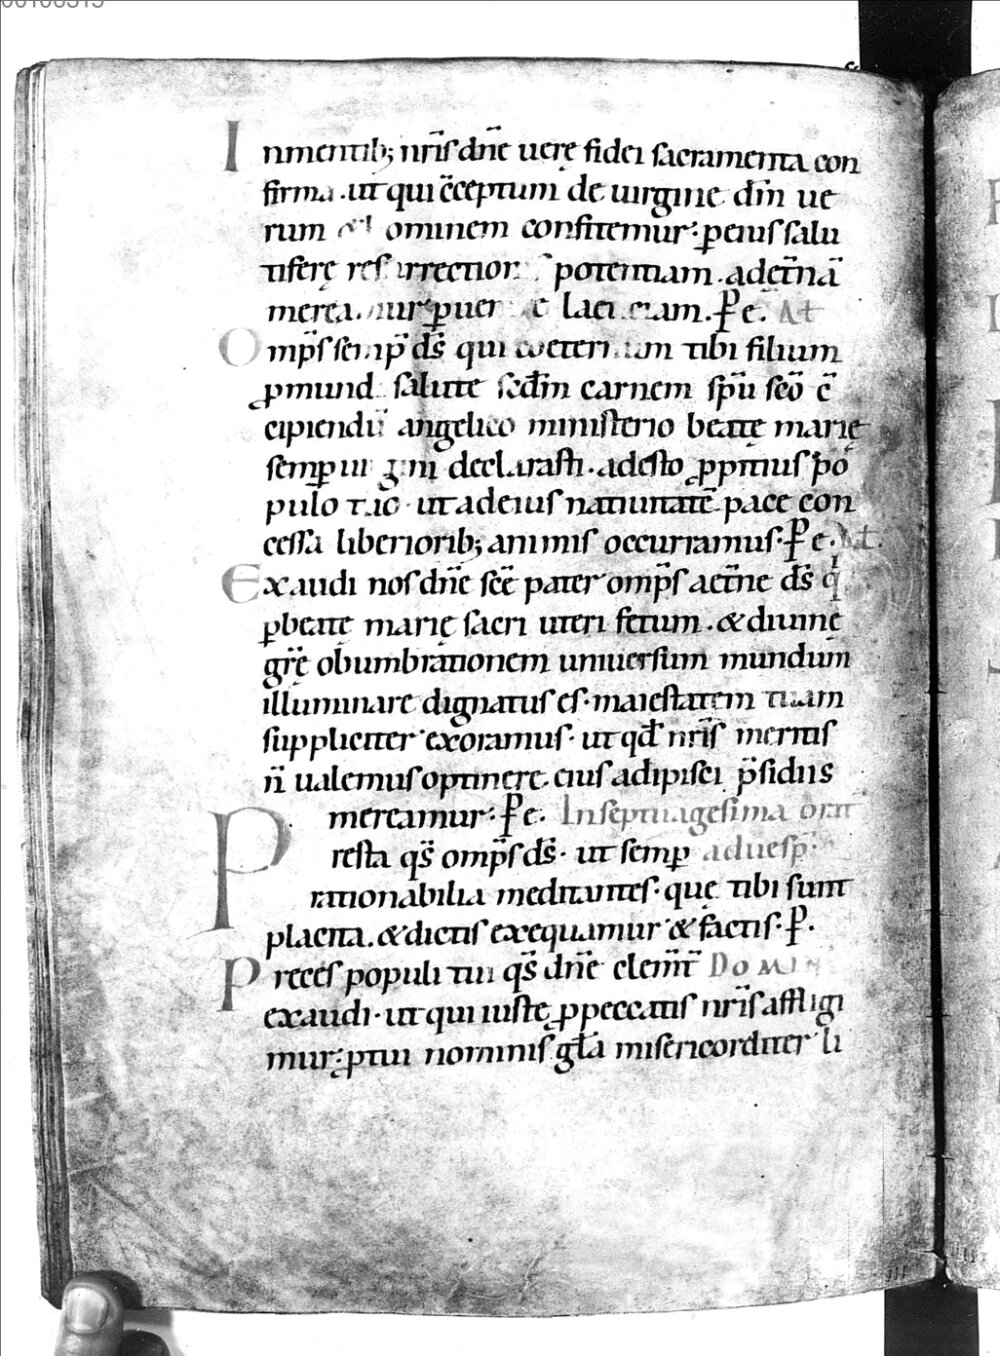 In mentib; nr̄is dn̄e uerę fidei sacramenta con
firma . ut qui c̄ceptum de uirgine dm̄ ue
rum ominem confitemur : ꝑ eius salu
tiferę resurrectionis potentiam . ad et̄nā
merea mur ꝑuenire laeticiam . P̄ e . At
Omp̄s semp̄ ds̄ qui coeternum tibi filium
ꝓ mundi salute scd̄m carnem sp̄u sc̄o c̄
cipiendū angelico ministerio beatę marię
semꝑ uirgini declarasti . adesto ꝓpitius po
pulo tuo . ut ad eius natiuitatē pace con
cessa liberiorib; animis occurramus . P̄ e . At .
Exaudi nos dn̄e sc̄e pater omp̄s aet̄ne ds̄ q
ꝑ beatę marię sacri uteri fetum . & diuinę
gr̄ę obumbrationem uniuersum mundum
illuminare dignatus es . maiestatem tuam
suppliciter exoramus . ut qđ nr̄is meritis
n̄ ualemus optinere . eius adipisci p̄sidiis
mereamur : P̄ e . In septuagesima orat
Presta qs̄ omp̄s ds̄ . ut semꝑ ad uesp̄ .
rationabilia meditantes . quę tibi sunt
placita . & dictis exequamur & factis . P̄ .
Preces populi tui qs̄ dn̄e clem̄t Domin
exaudi . ut qui iuste ꝓ peccatis nr̄is affligi
mur : ꝓ tui nominis gl̄a misericorditer li